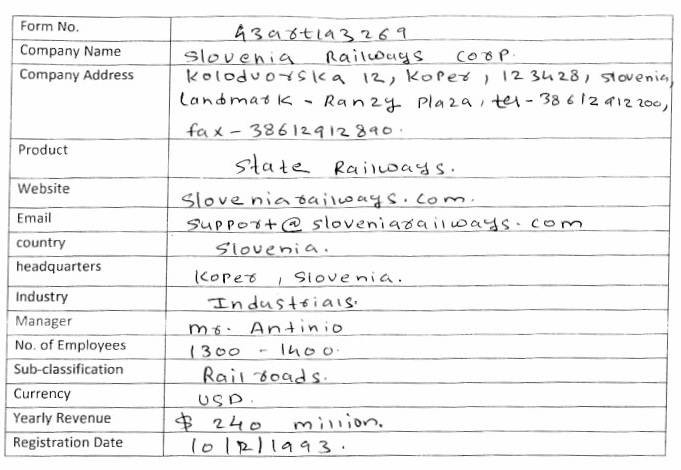 Form No. 43art193269
Company Name Slovenia Railways Corp.
Company Address Kolodvorska 12, Koper, 123428, Slovenia,
Landmark - Ranzy Plaza, tel - 38612912200,
fax - 38612912890.
Product State Railways.
Website sloveniarailways.com.
Email support@sloveniarailways.com
country Slovenia.
headquarters Koper, Slovenia.
Industry Industrials.
Manager mr. Antinio
No. of Employees 1300 - 1400.
Sub-classification Rail roads.
Currency USD.
Yearly Revenue $ 240 million.
Registration Date 10/12/1993.